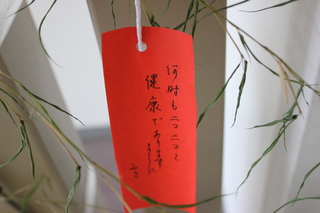 何時もニコニコと
健康であります
ように